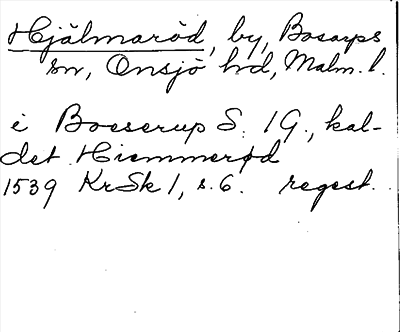 Hjälmaröd, by, Bosarps
sn, Onsjö hrd, Malm. l.
i Bosserup S. 1 G., kal-
det Hiemmerød
1539 KrSk 1, s. 6. regest.